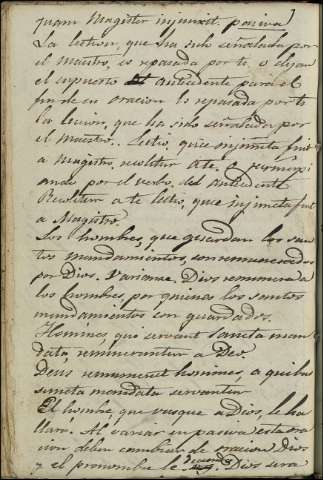 quam Magister injunxit. pasiva
La leccion, que ha sido señalada por
el Maestro, es repasada por ti, o dejan
el supuesto antecedente para el
fin de su oracion Es repasada por ti
la leccion, que ha sido señalada por
el Maestro. Lectio, quæ injuncta fuit
a Magistro, recolitur a te. o principi
ando por el verbo del antecedente
Recolitur a te lectio, quæ injuncta fuit
a Magistro.
Los hombres, que guardan los san
tos mandamientos, son remunerados
por Dios. Variance. Dios remunera a
los hombres, por quienes los santos
mandamientos son guardados.
Homines, qui servant sancta man
data, remunerantur a Deo.
Deus remuneret homines, a quibus
sancta mandata servantur
El hombre, que busque a Dios, le ha
llará. Al variar en pasiva esta ora
cion deben cambiarse diciendo Dios
y el pronombre le. Dios sera